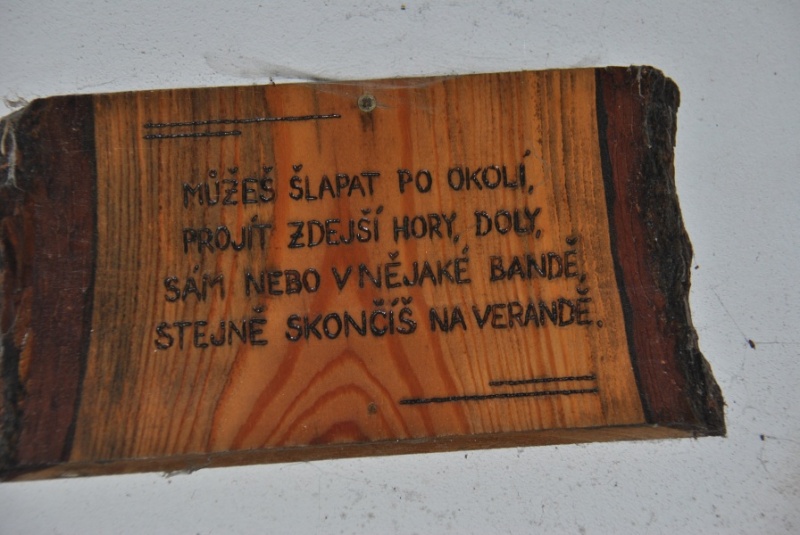 MŮŽEŠ ŠLAPAT PO OKOLÍ,
PROJÍT ZDEJŠÍ HORY, DOLY,
SÁM NEBO V NĚJAKÉ BANDĚ,
STEJNĚ SKONČÍŠ NA VERANDĚ.